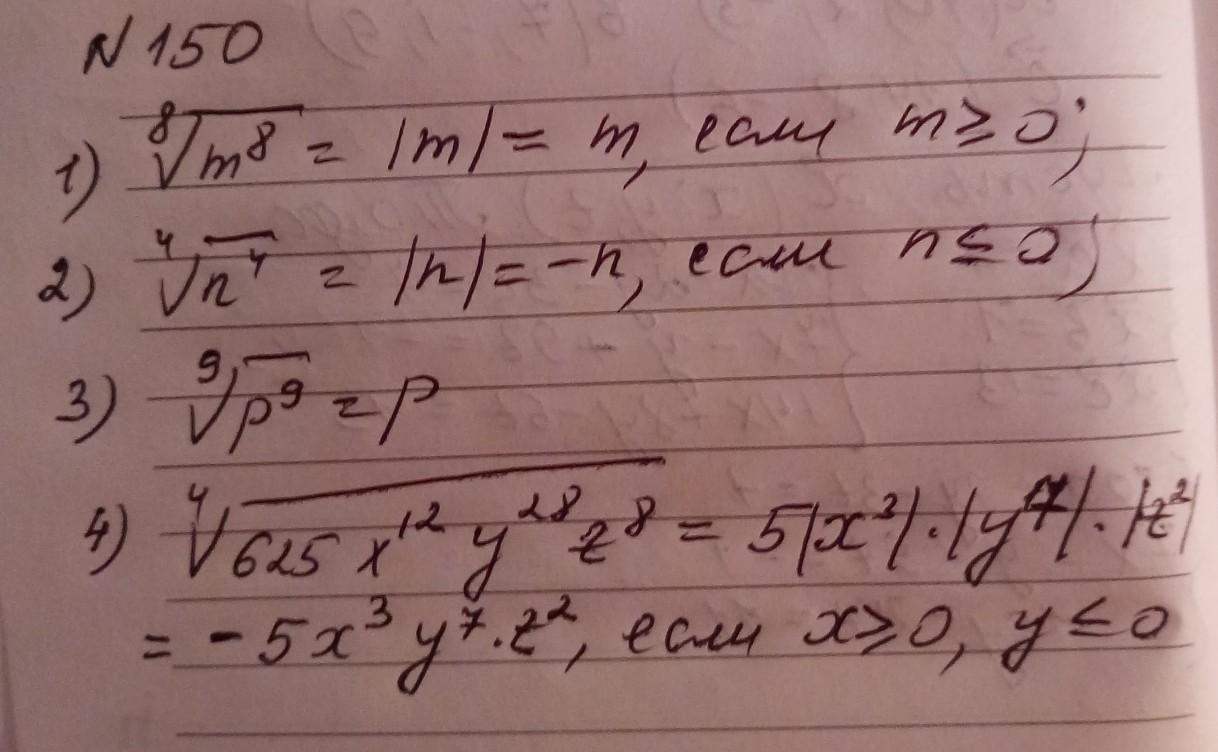 N 150
1) ⁸√m⁸ = |m| = m, если m ≥ 0;
2) ⁴√n⁴ = |n| = -n, если n ≤ 0;
3) ⁹√p⁹ = p
4) ⁴√625 x¹² y²⁸ z⁸ = 5|x³|·|y⁷|·|z²|
= -5x³ y⁷·z², если x ≥ 0, y ≤ 0